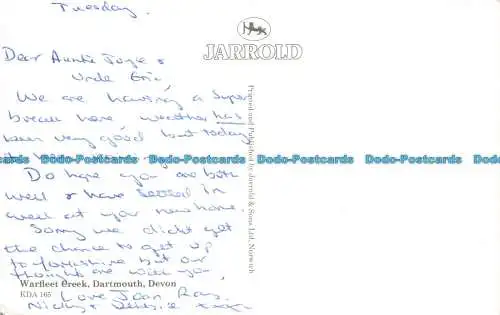 Tuesday.
JARROLD
Dear Auntie Joyce &
Uncle Eric,
We are having a super
break here, weather has
been very good but today
Dodo-Postcards Dodo-Postcards Dodo-Postcards Dodo-Postcards Dodo-Postcards
Do hope you are both
well & have settled in
well at your new home.
Sorry we didnt get
the chance to get up
to Yorkshire but our
thoughts are with you,
Warfleet Creek, Dartmouth, Devon
KDA 165
Love Joan Ray,
Nicky & Debbie xxx
Printed and Published by Jarrold & Sons Ltd, Norwich